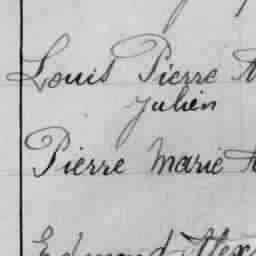 Louis Pierre
Julien
Pierre Marie
Edmond Alex